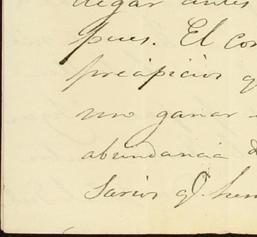 llegar antes
pues. El con
precipicios q
uno ganar
abundancia d
sarios q. hun